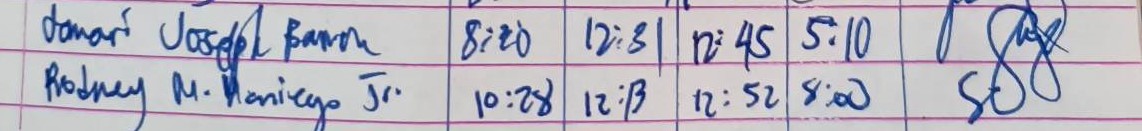 Jomari Joseph Barron 8:20 12:31 12:45 5:10
Rodney M. Maniego Jr. 10:28 12:13 12:52 8:00